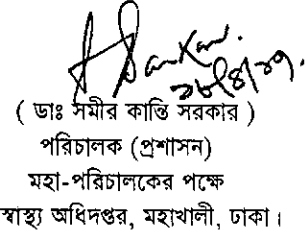 ( ডাঃ সমীর কান্তি সরকার )
পরিচালক (প্রশাসন)
মহা-পরিচালকের পক্ষে
স্বাস্থ্য অধিদপ্তর, মহাখালী, ঢাকা।